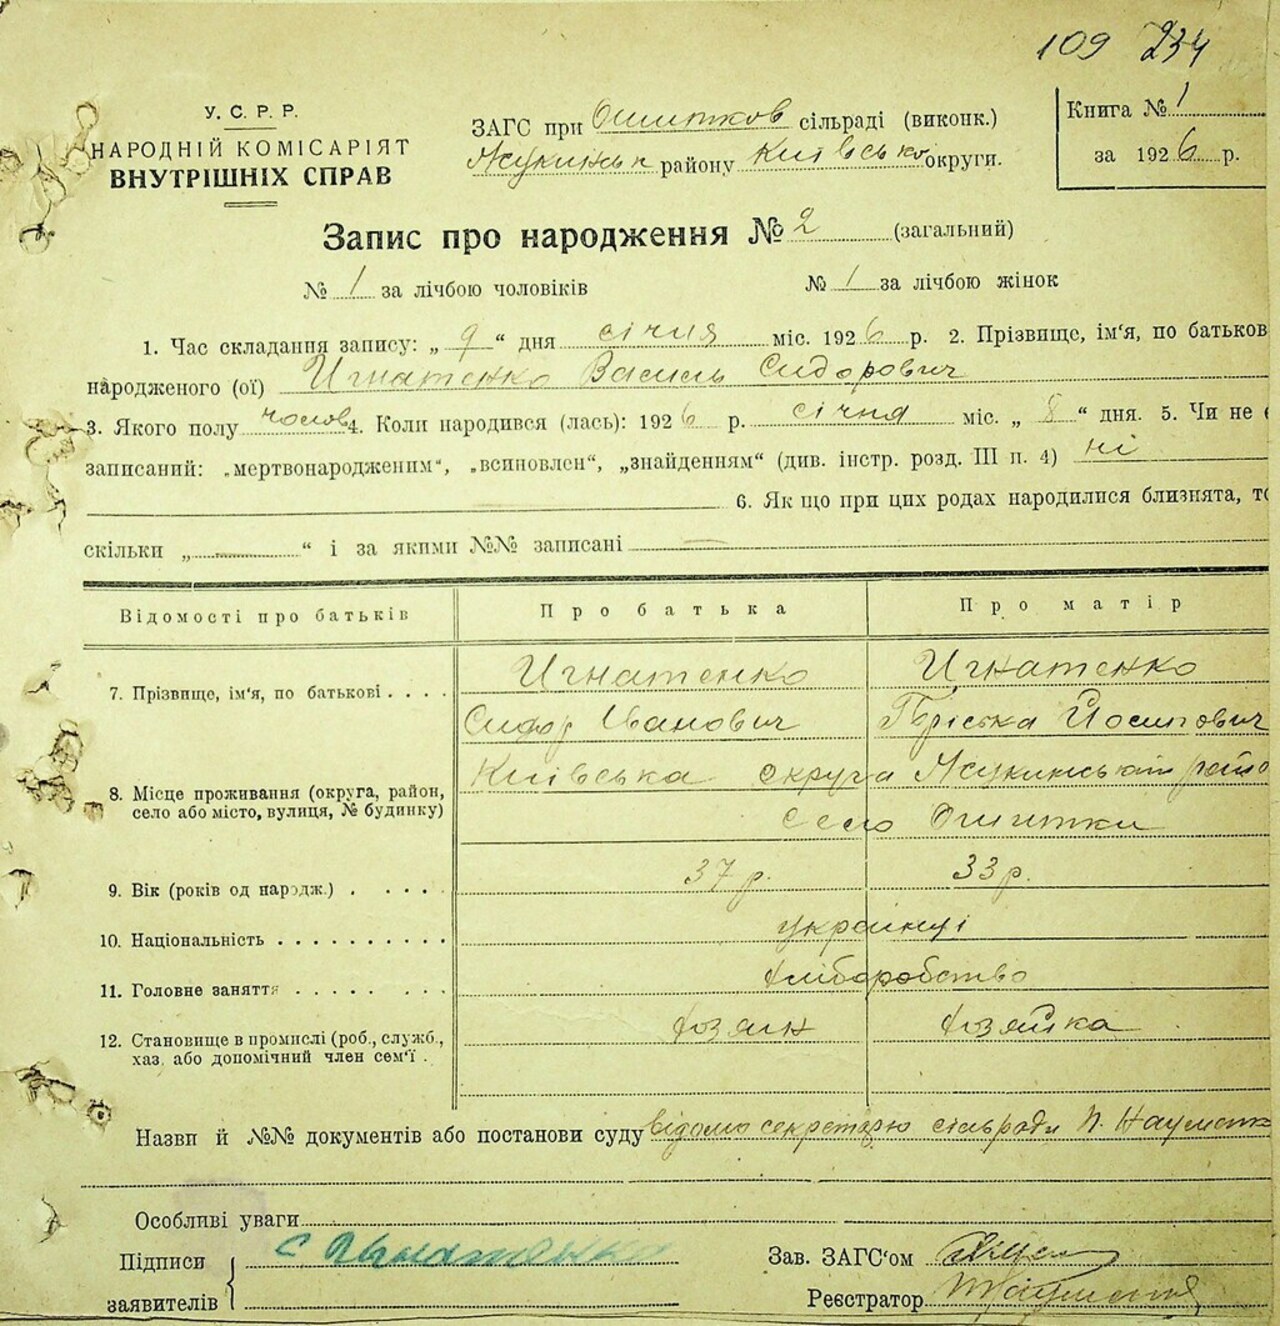 109 234
У. С. Р. Р.
НАРОДНІЙ КОМІСАРІЯТ
ВНУТРІШНІХ СПРАВ
ЗАГС при Ошитков сільраді (виконк.)
району Київсько округи.
Книга № 1
за 1926 р.
Запис про народження № 2 (загальний)
№ 1 за лічбою чоловіків № 1 за лічбою жінок
1. Час складання запису: „ 9 “ дня січня міс. 1926 р. 2. Прізвище, ім'я, по батьков
народженого (ої) Игнатенко Василь Сидорович
3. Якого полу чолов 4. Коли народився (лась): 1926 р. січня міс. „ 8 “ дня. 5. Чи не є
записаний: „мертвонародженим“, „всиновлен“, „знайденням“ (див. інстр. розд. III п. 4) ні
6. Як що при цих родах народилися близнята, то
скільки „ — “ і за якими №№ записані —
Відомості про батьків Про батька Про матір
7. Прізвище, ім'я, по батькові . . . . Игнатенко Игнатенко
Сидор Иванович Йосипович
8. Місце проживання (округа, район, село або місто, вулиця, № будинку) Київська округа
село Ошитки
9. Вік (років од народж.) . . . . . 37 р. 33 р.
10. Національність . . . . . . . . . . українці
11. Головне заняття . . . . . . . . хліборобство
12. Становище в промислі (роб., служб., хаз. або допомічний член сем'ї . хозяин хозяйка
Назви й №№ документів або постанови суду відомо секретарю сільради П. Науменк
Особливі уваги
Підписи С Игнатенко Зав. ЗАГС'ом
заявителів Реєстратор